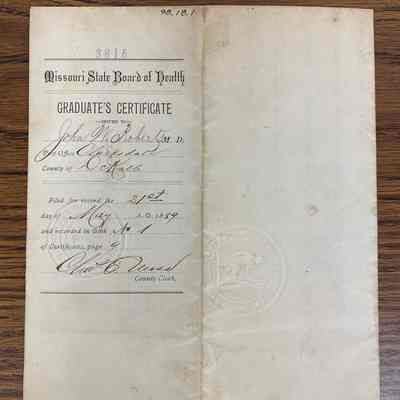 98.18.1
3816
Missouri State Board of Health
GRADUATE'S CERTIFICATE
ISSUED TO
John W. Roberts M. D.
Clarksdale
County of DeKalb
Filed for record the 21st
day of May A. D. 1889
and recorded in Book No 1
of Certificates, page 9
Chas E.
County Clerk.